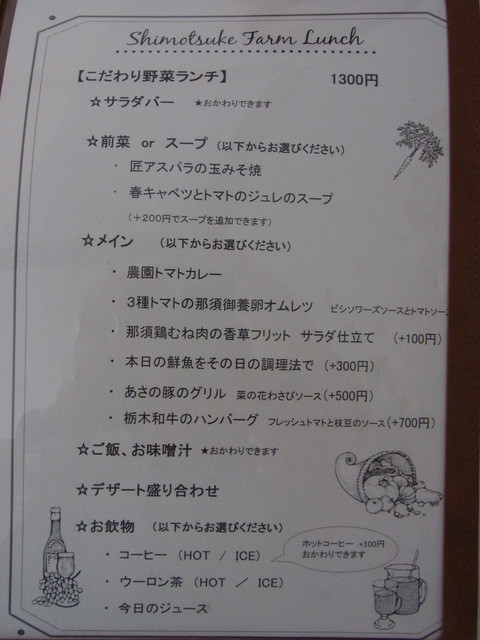 Shimotsuke Farm Lunch
【こだわり野菜ランチ】 1300円
☆サラダバー ★おかわりできます
☆前菜 or スープ (以下からお選びください)
・ 匠アスパラの玉みそ焼
・ 春キャベツとトマトのジュレのスープ
(+200円でスープを追加できます)
☆メイン (以下からお選びください)
・ 農園トマトカレー
・ 3種トマトの那須御養卵オムレツ ビシソワーズソースとトマトソー
・ 那須鶏むね肉の香草フリット サラダ仕立て (+100円)
・ 本日の鮮魚をその日の調理法で (+300円)
・ あさの豚のグリル 菜の花わさびソース(+500円)
・ 栃木和牛のハンバーグ フレッシュトマトと枝豆のソース(+700円)
☆ご飯、お味噌汁 ★おかわりできます
☆デザート盛り合わせ
☆お飲物 (以下からお選びください)
・ コーヒー (HOT / ICE)
ホットコーヒー +100円
おかわりできます
・ ウーロン茶 (HOT / ICE)
・ 今日のジュース